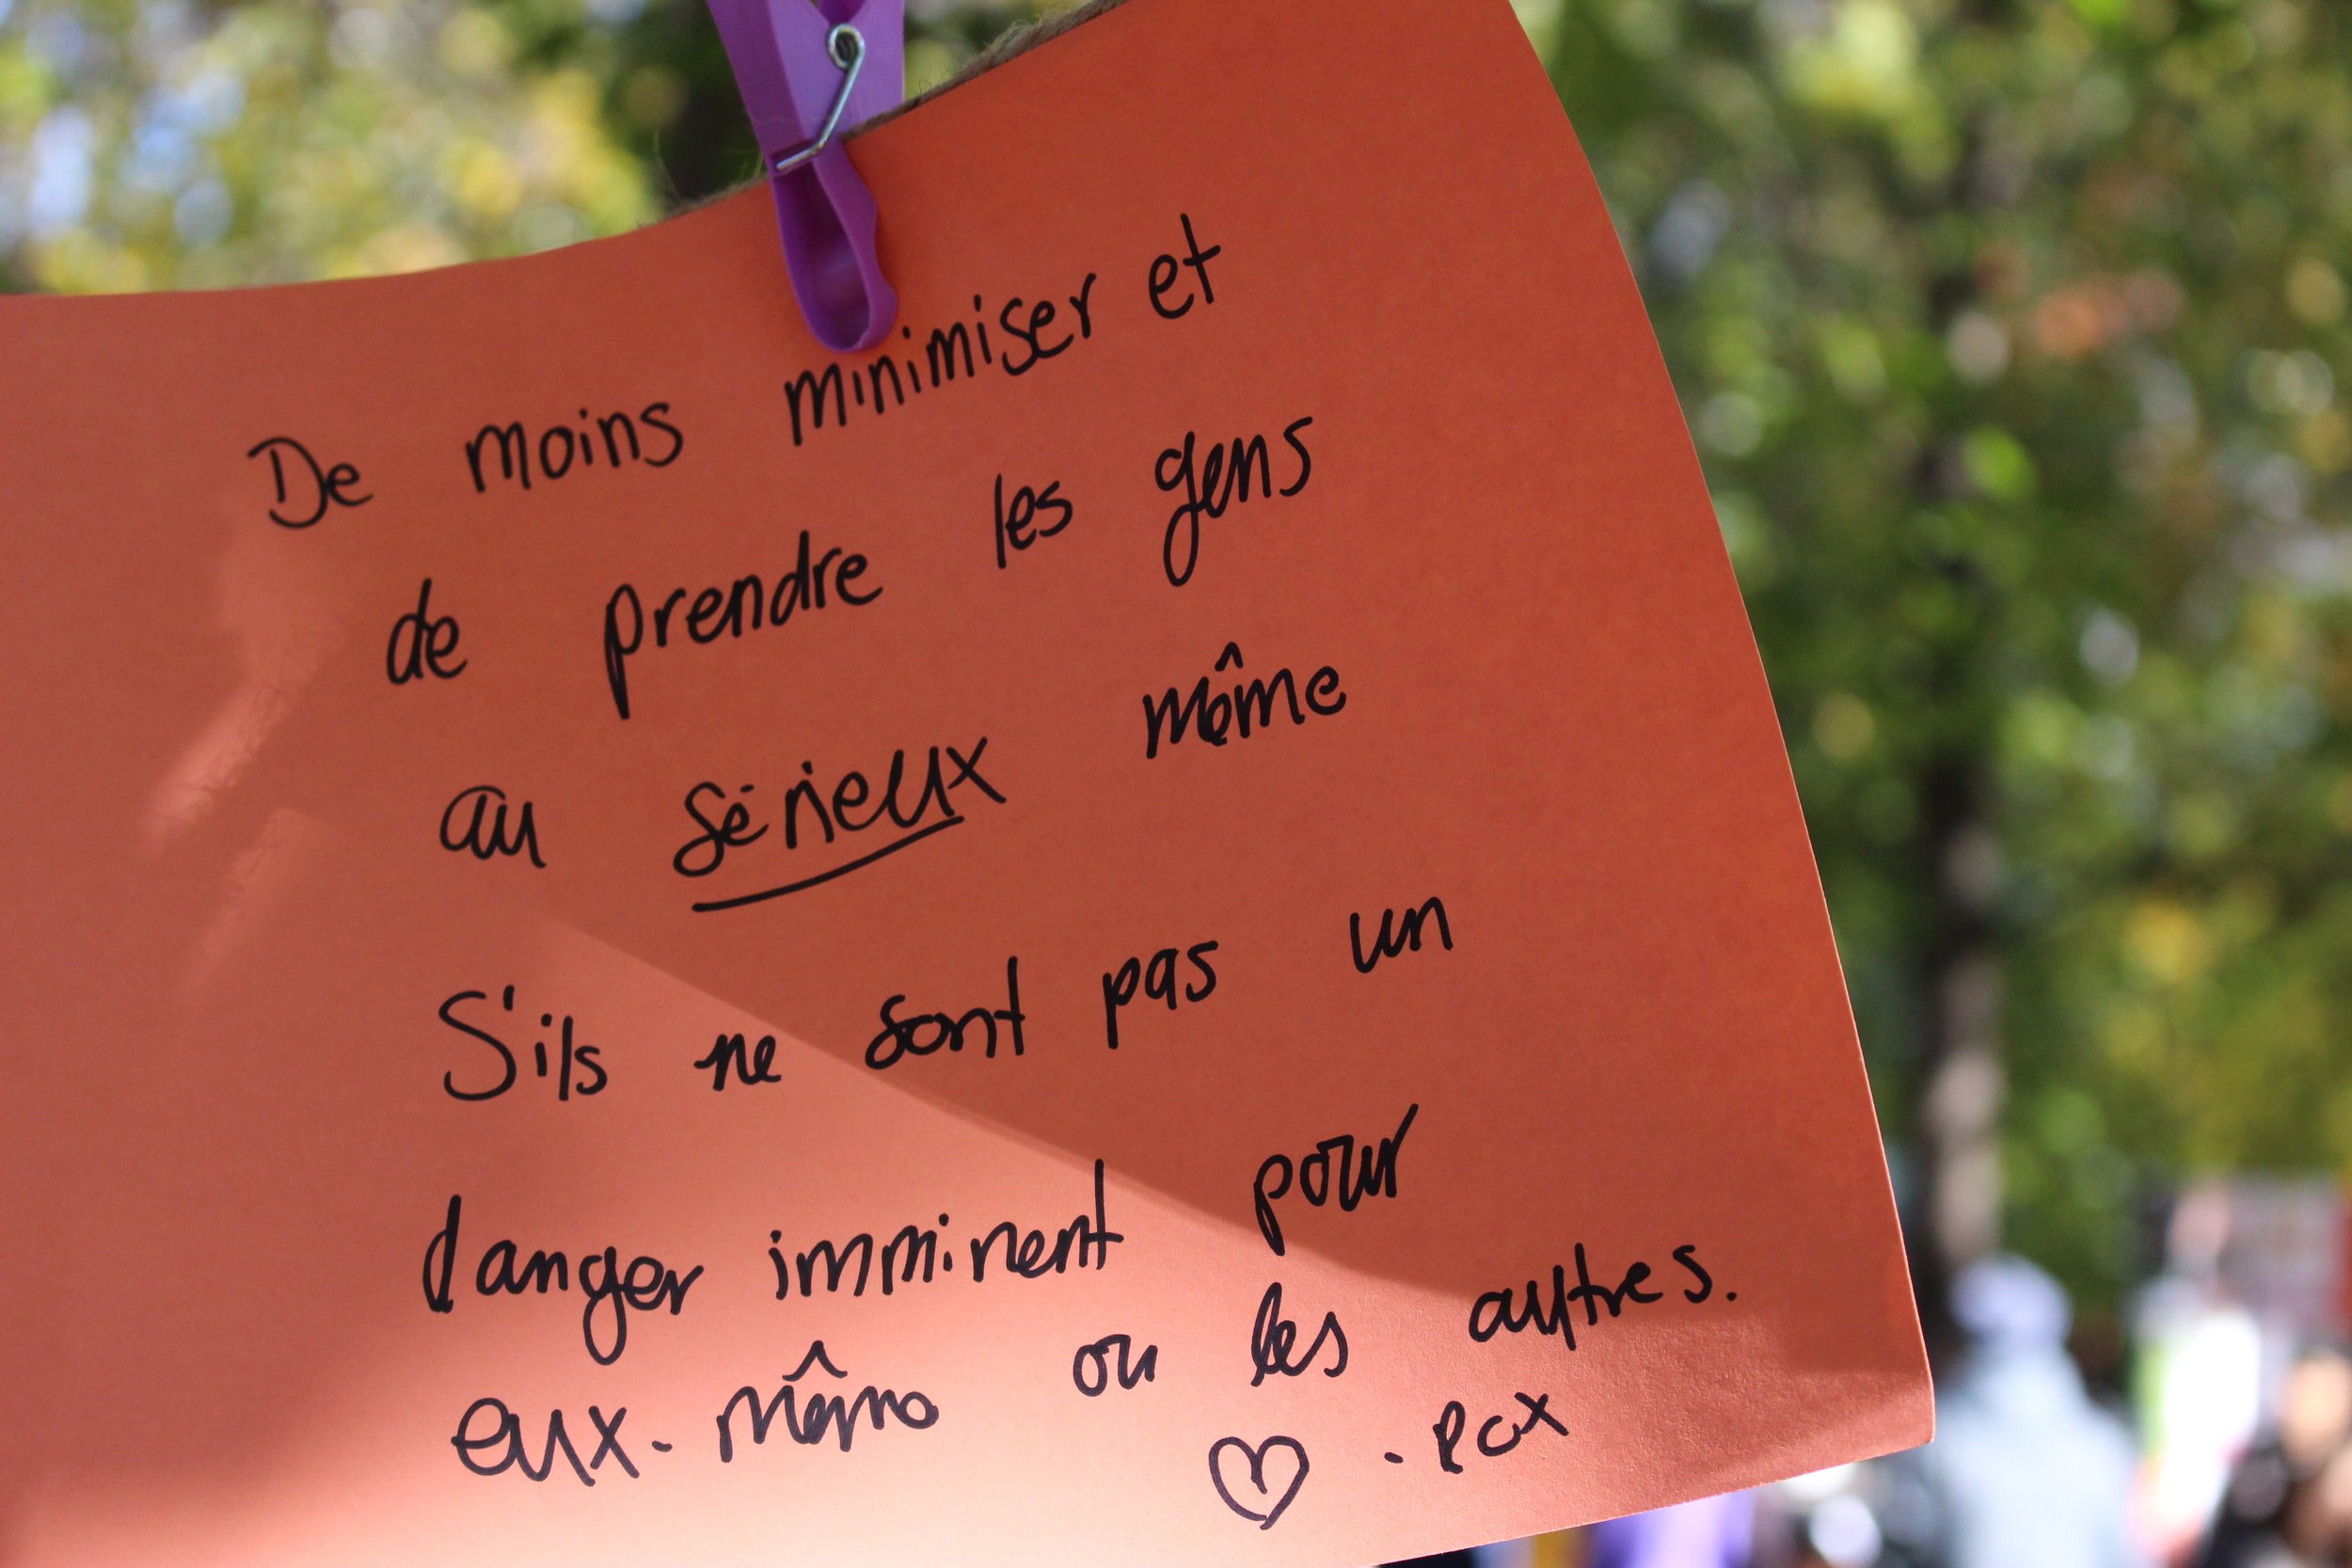 De moins minimiser et
de prendre les gens
au sérieux même
S'ils ne sont pas un
danger imminent pour
eux-même ou les autres.
♡ - Pax